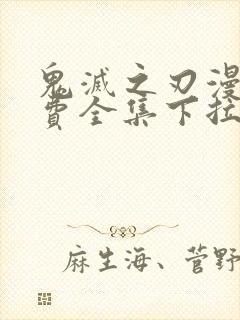 鬼滅之刃漫
費全集下拉
麻生海、菅野